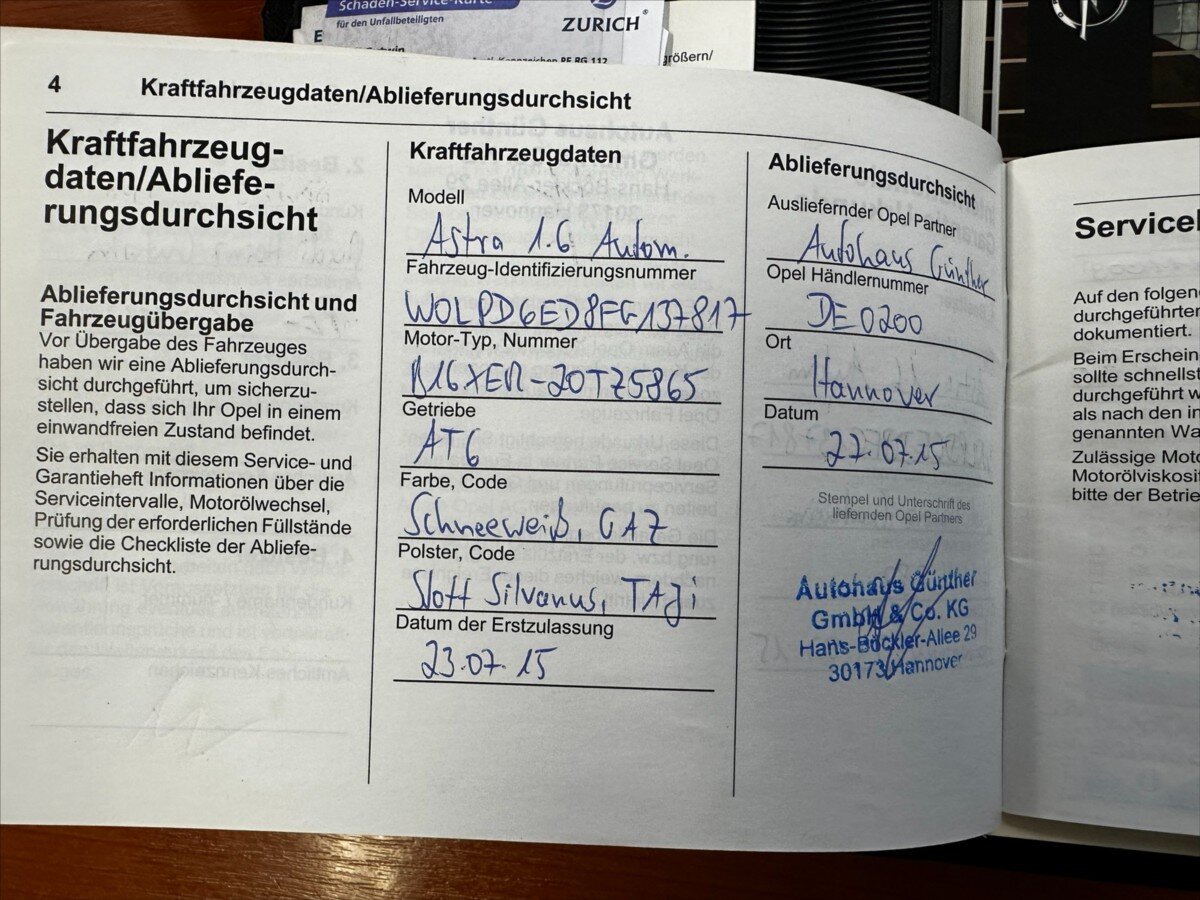 Schaden-Service-Karte
für den Unfallbeteiligten
ZURICH
größern/
4 Kraftfahrzeugdaten/Ablieferungsdurchsicht
Kraftfahrzeug-
daten/Abliefe-
rungsdurchsicht
Ablieferungsdurchsicht und
Fahrzeugübergabe
Vor Übergabe des Fahrzeuges
haben wir eine Ablieferungsdurch-
sicht durchgeführt, um sicherzu-
stellen, dass sich Ihr Opel in einem
einwandfreien Zustand befindet.
Sie erhalten mit diesem Service- und
Garantieheft Informationen über die
Serviceintervalle, Motorölwechsel,
Prüfung der erforderlichen Füllstände
sowie die Checkliste der Abliefe-
rungsdurchsicht.
Kraftfahrzeugdaten
Modell
Astra 1.6 Autom.
Fahrzeug-Identifizierungsnummer
W0LPD6ED8FG137817
Motor-Typ, Nummer
B16XER-20TZ5865
Getriebe
AT6
Farbe, Code
Schneeweiß, GAZ
Polster, Code
Stoff Silvanus, TAJi
Datum der Erstzulassung
23.07.15
Ablieferungsdurchsicht
Ausliefernder Opel Partner
Autohaus Günther
Opel Händlernummer
DE0200
Ort
Hannover
Datum
22.07.15
Stempel und Unterschrift des
liefernden Opel Partners
Autohaus Günther
GmbH & Co. KG
Hans-Böckler-Allee 29
30173 Hannover
Auf den folgen
durchgeführten
dokumentiert.
Beim Erschein
sollte schnellst
durchgeführt w
als nach den in
genannten Wa
Zulässige Moto
Motorölviskosit
bitte der Betrie